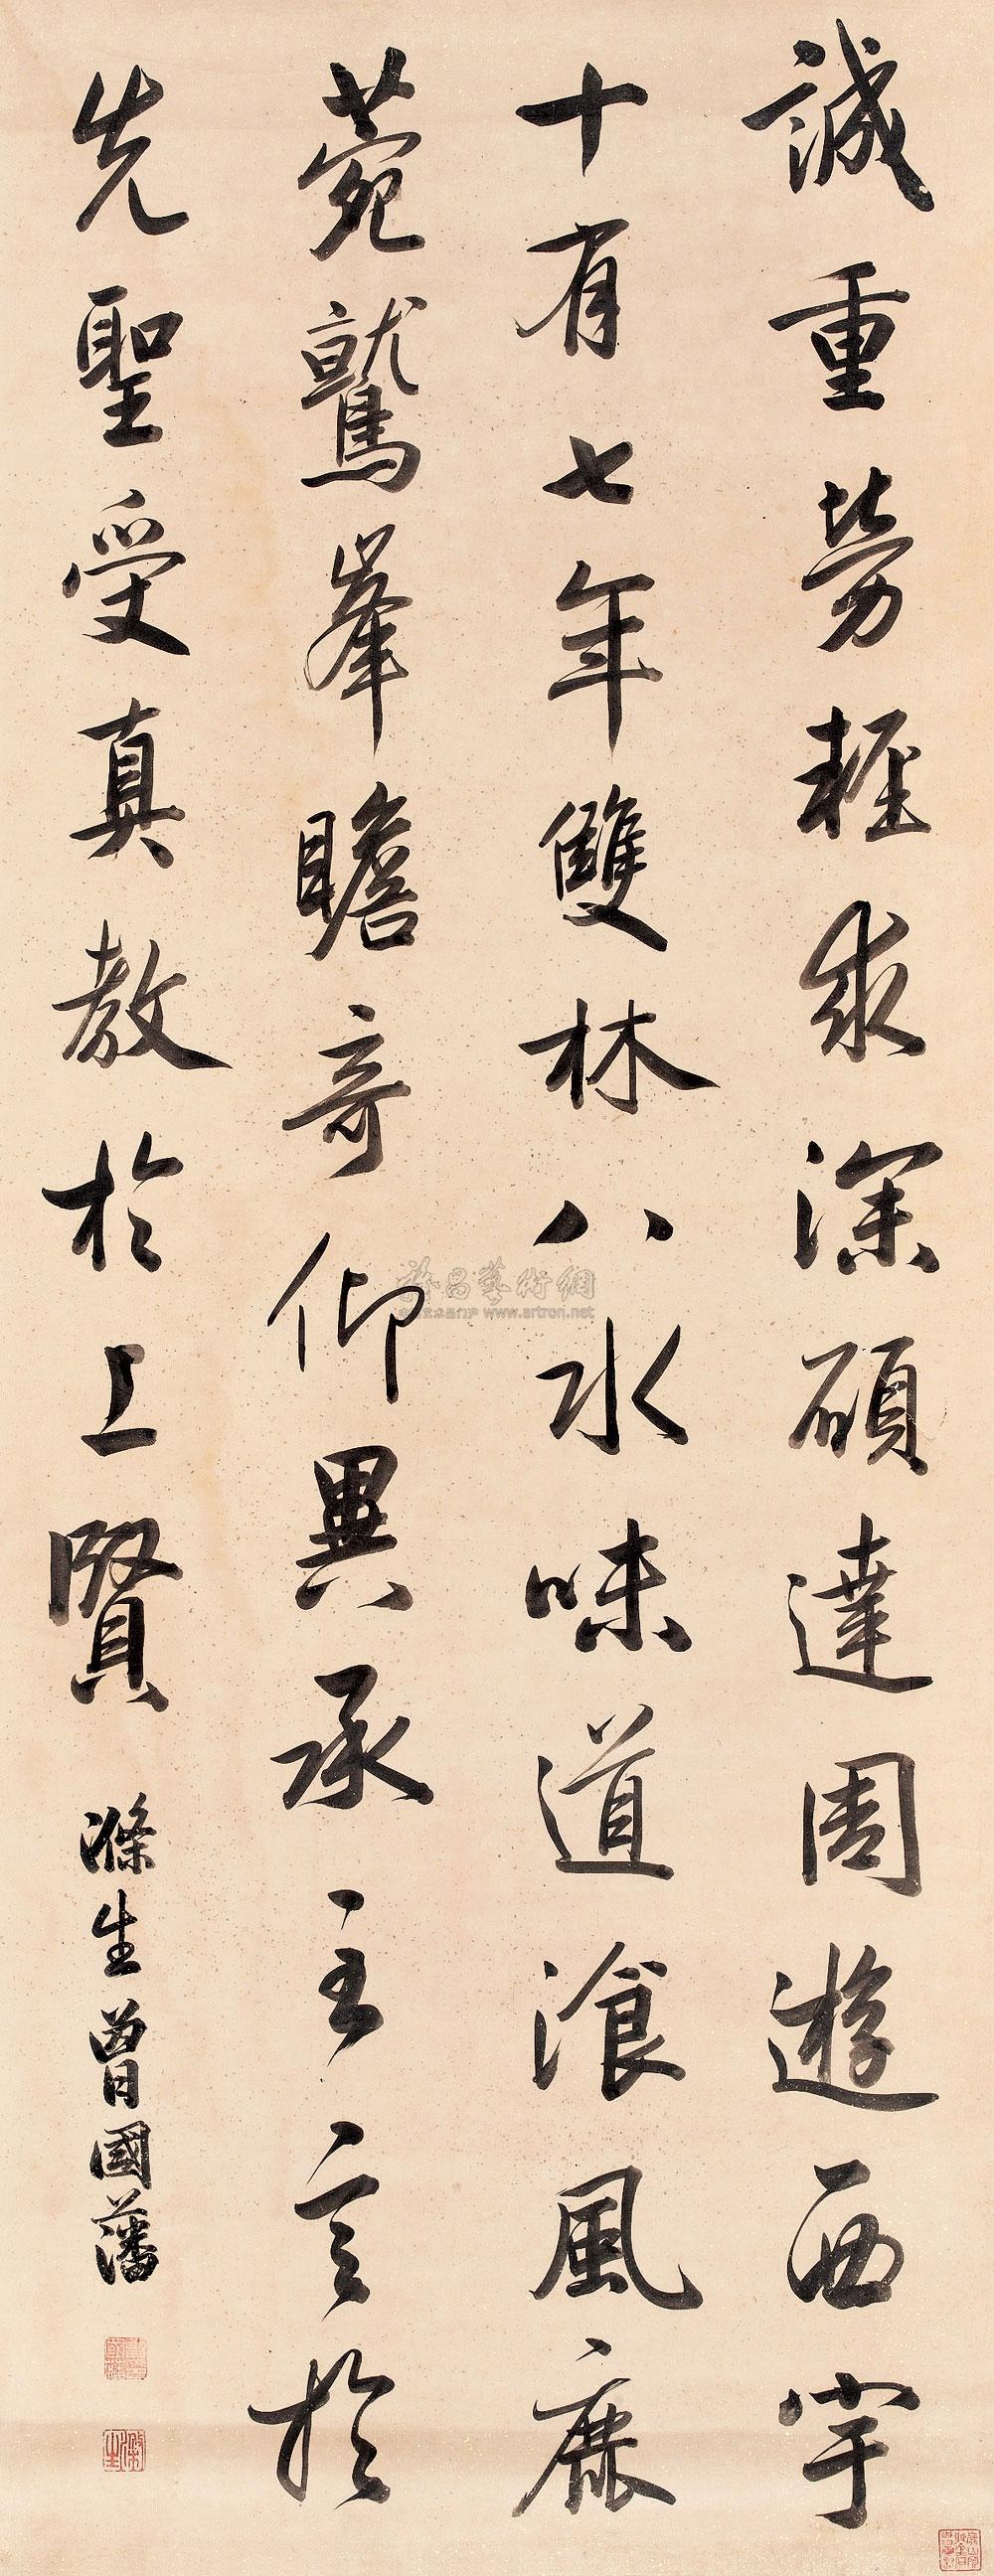 誠重勞輕求深願達周遊西宇
十有七年雙林八水味道湌風鹿
菀鷲峯瞻奇仰異承至言於
先聖受真教於上賢
滌生曾國藩
雅昌藝術網
www.artron.net